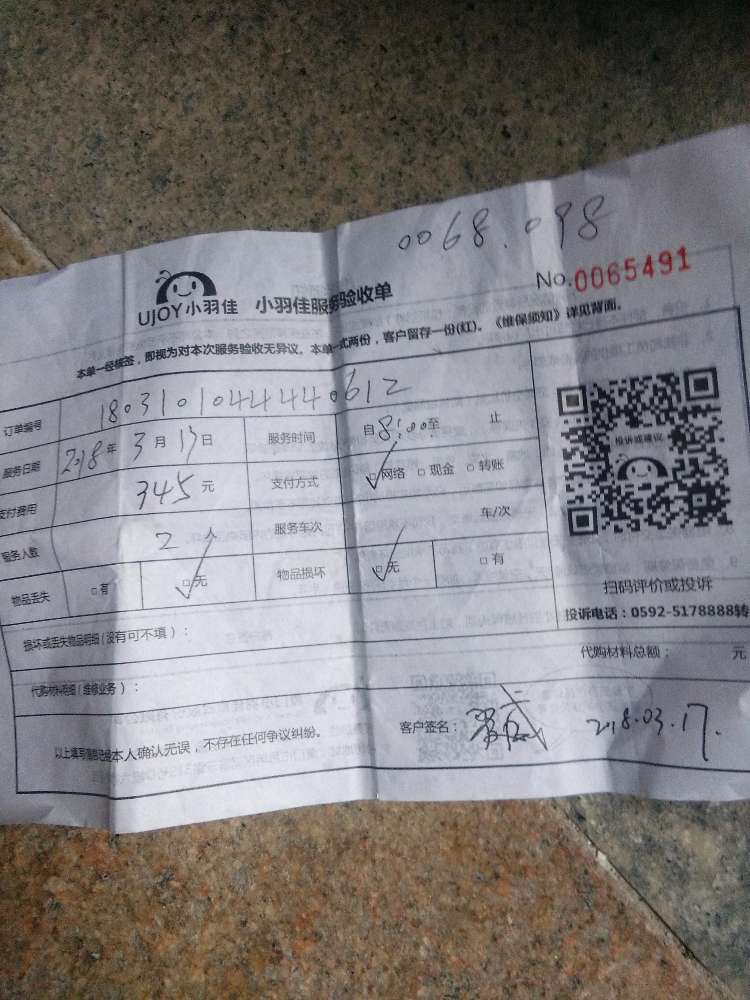 0068.098
UJOY小羽佳 小羽佳服务验收单 No.0065491
本单一经核签，即视为对本次服务验收无异议。本单一式两份，客户留存一份(红)。《维保须知》详见背面。
订单编号 180310104444 0612
服务日期 2018年3月17日 服务时间 自8:00至 止
支付费用 345元 支付方式 ☑网络 □现金 □转账
服务人数 2人 服务车次 车/次
物品丢失 □有 ☑无 物品损坏 ☑无 □有
投诉或建议
扫码评价或投诉
投诉电话：0592-5178888转
损坏或丢失物品明细(没有可不填)：
代购材料明细(维修业务)： 代购材料总额： 元
以上填写信息已经本人确认无误，不存在任何争议纠纷。 客户签名： 2018.03.17.